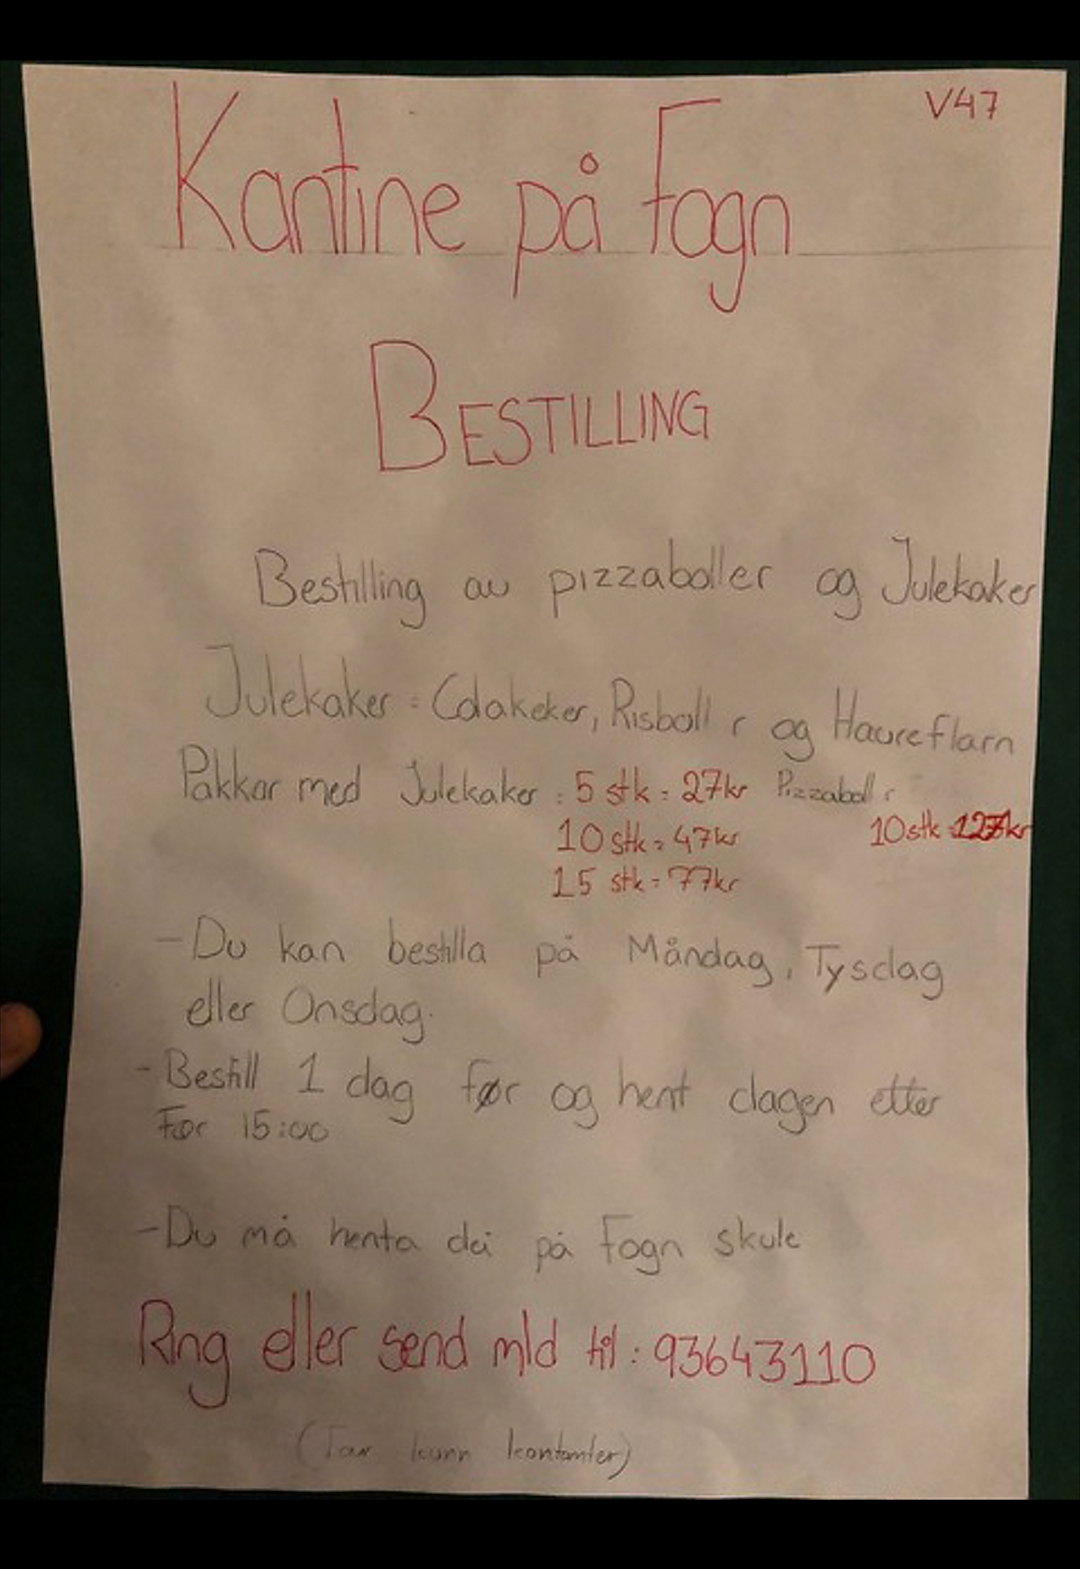 V47
Kantine på Fogn
BESTILLING
Bestilling av pizzaboller og Julekaker
Julekaker: Colakeker, Risboll r og Havreflarn
Pakkar med Julekaker: 5 stk = 27kr Pizzaboll r
10 stk = 47kr 10stk
15 stk = 77kr
- Du kan bestilla på Måndag, Tysdag
eller Onsdag.
- Bestill 1 dag før og hent dagen etter
Før 15:00
- Du må henta dei på Fogn skule
Ring eller send mld til: 93643110
(Tar kunn kontanter)